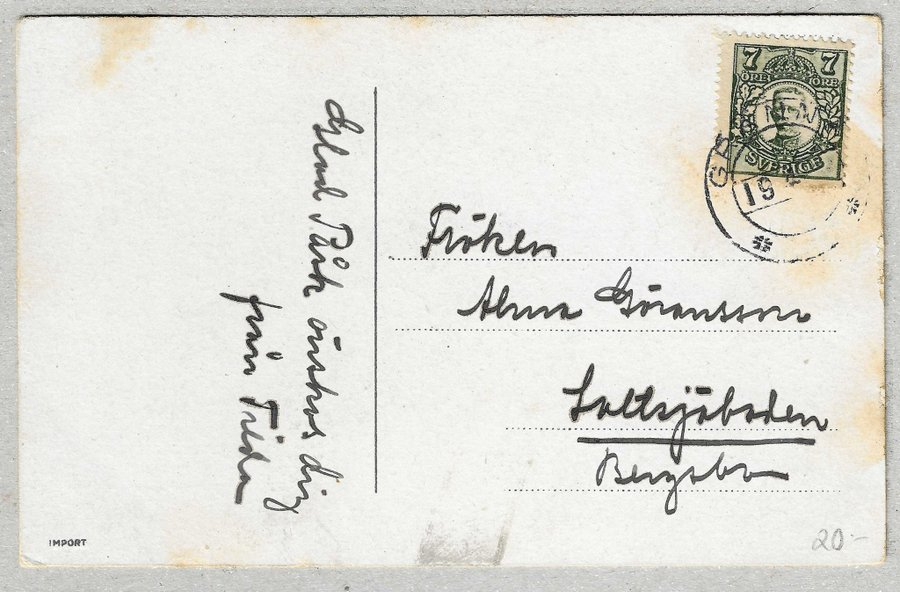 Glad Påsk önskas dig
från Tilda
7 7
ÖRE ÖRE
SVERIGE
19
Fröken
Alma Göransson
Saltsjöbaden
Bergsbo
IMPORT
20:-